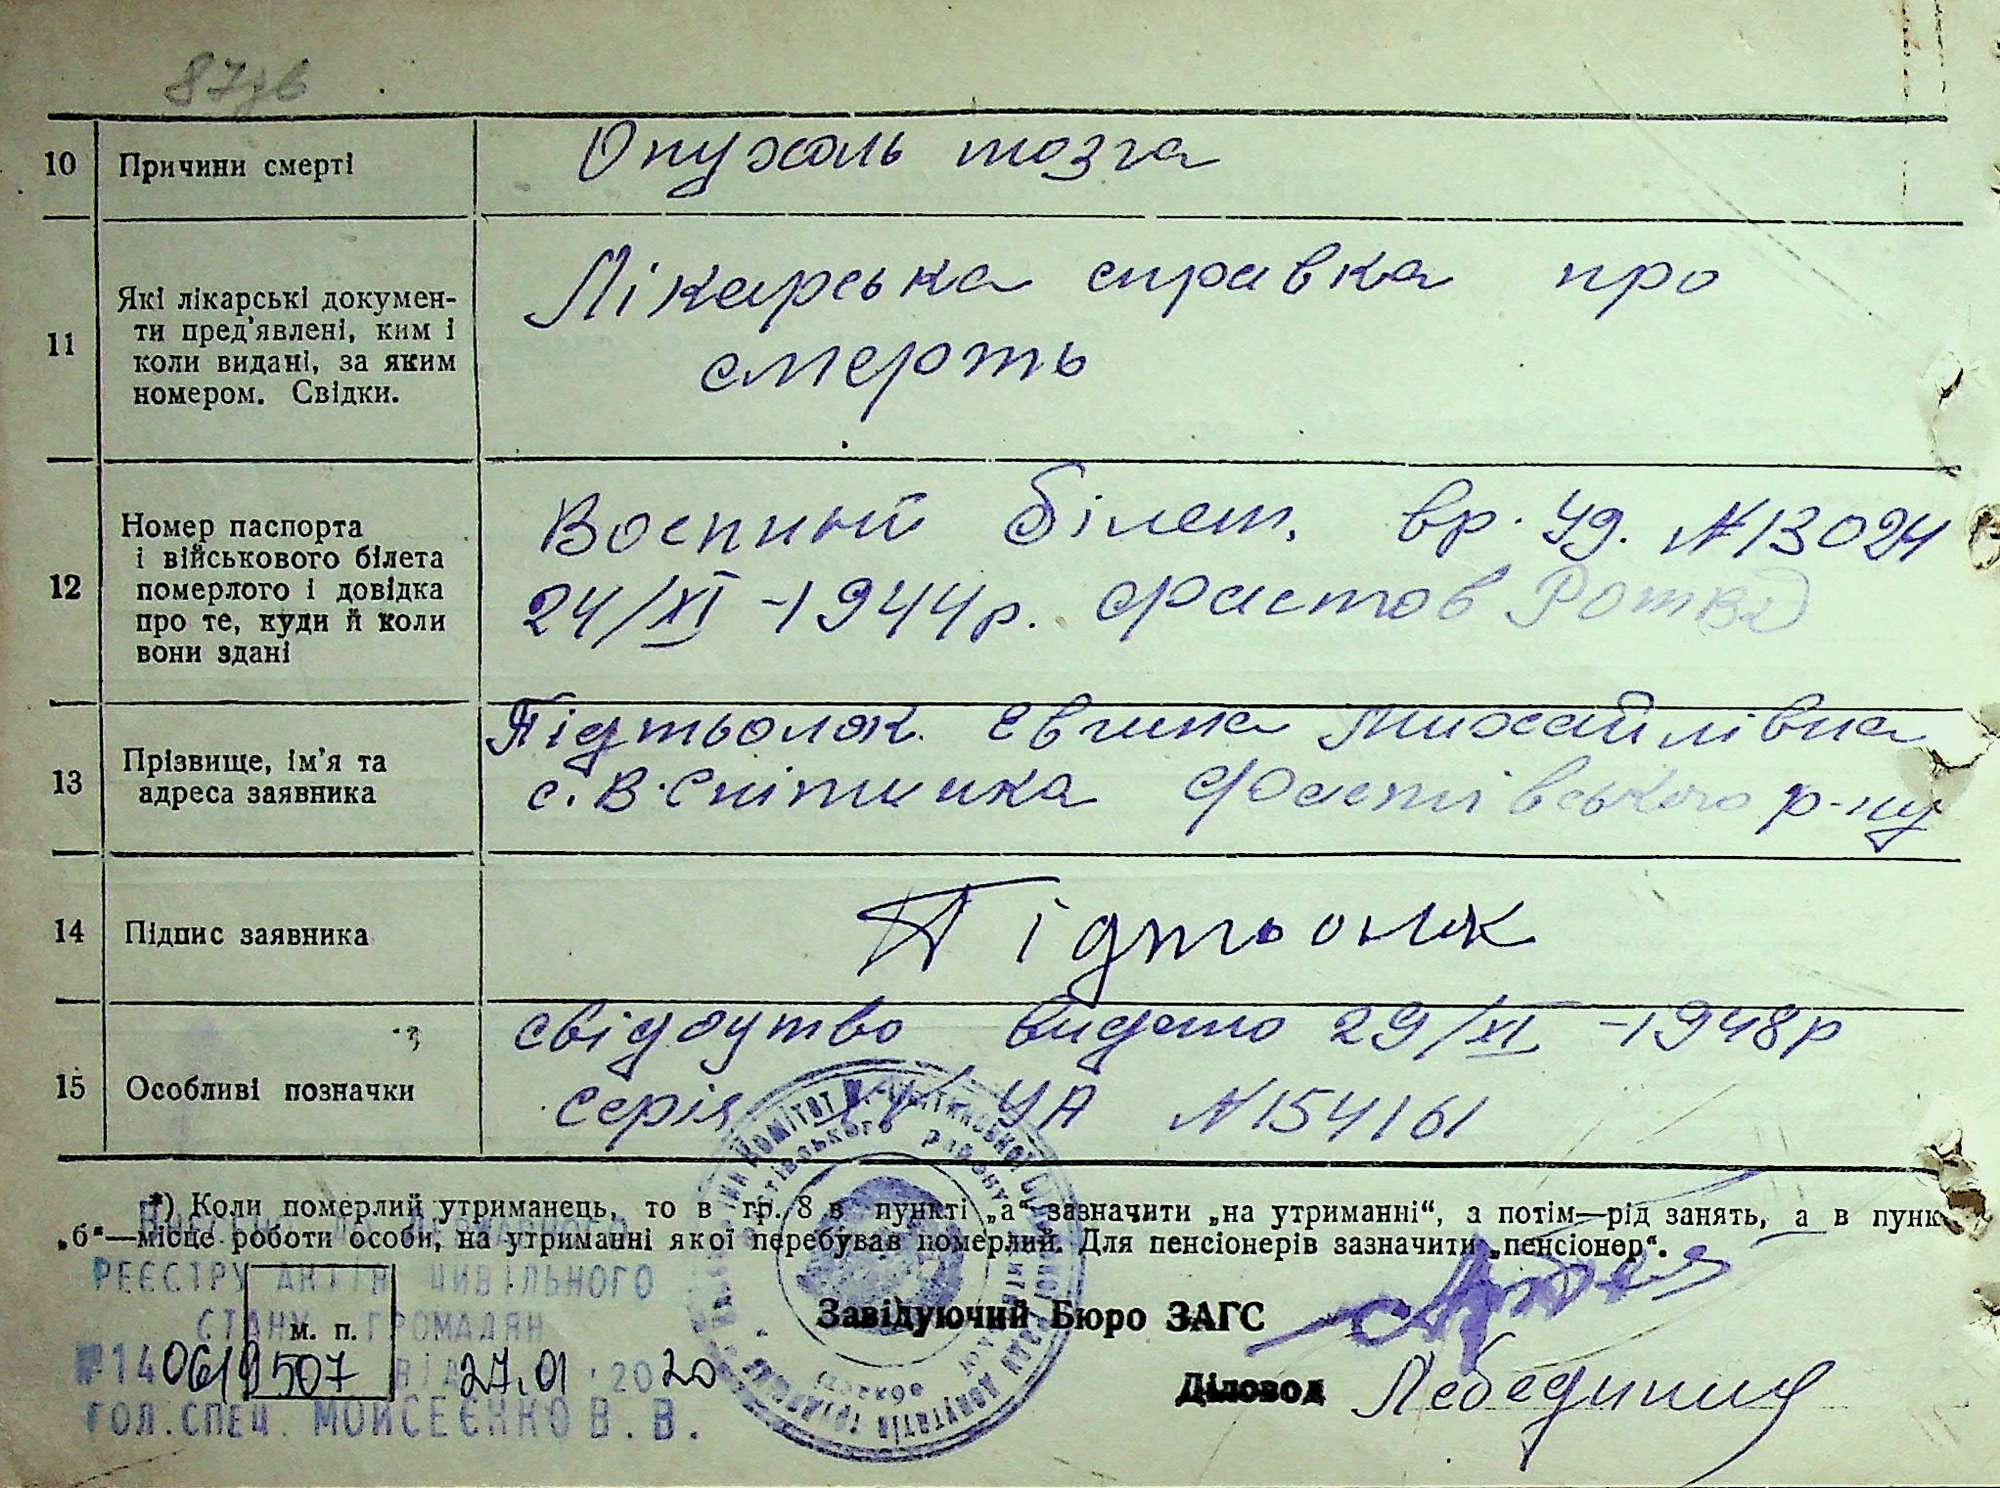 10 Причини смерті Опухоль мозга
11 Які лікарські докумен-
ти пред'явлені, ким і
коли видані, за яким
номером. Свідки.
Лікарська справка про
смерть
12 Номер паспорта
і військового білета
померлого і довідка
про те, куди й коли
вони здані
Воєнний білет. вр. уд. № 13024
24/XI -1944р. Фастов
13 Прізвище, ім'я та
адреса заявника
Підтьолок Євгина Михайлівна
с. В. Снітинка Фастівського р-ну
14 Підпис заявника Підтьолок
15 Особливі позначки
свідоцтво видано 29/XI -1948р
Серія УА № 154161
*) Коли померлий утриманець, то в гр. 8 в пункті „а“ зазначити „на утриманні“, а потім—рід занять, а в пунк
„б“—місце роботи особи, на утриманні якої перебував померлий. Для пенсіонерів зазначити „пенсіонер“.
ВНЕСЕНО ДО ДЕРЖАВНОГО
РЕЄСТРУ АКТІВ ЦИВІЛЬНОГО
СТАНУ ГРОМАДЯН
м. п.
від 27.01.2020
ГОЛ.СПЕЦ. МОЙСЕЄНКО В.В.
Завідуючий Бюро ЗАГС
Діловод